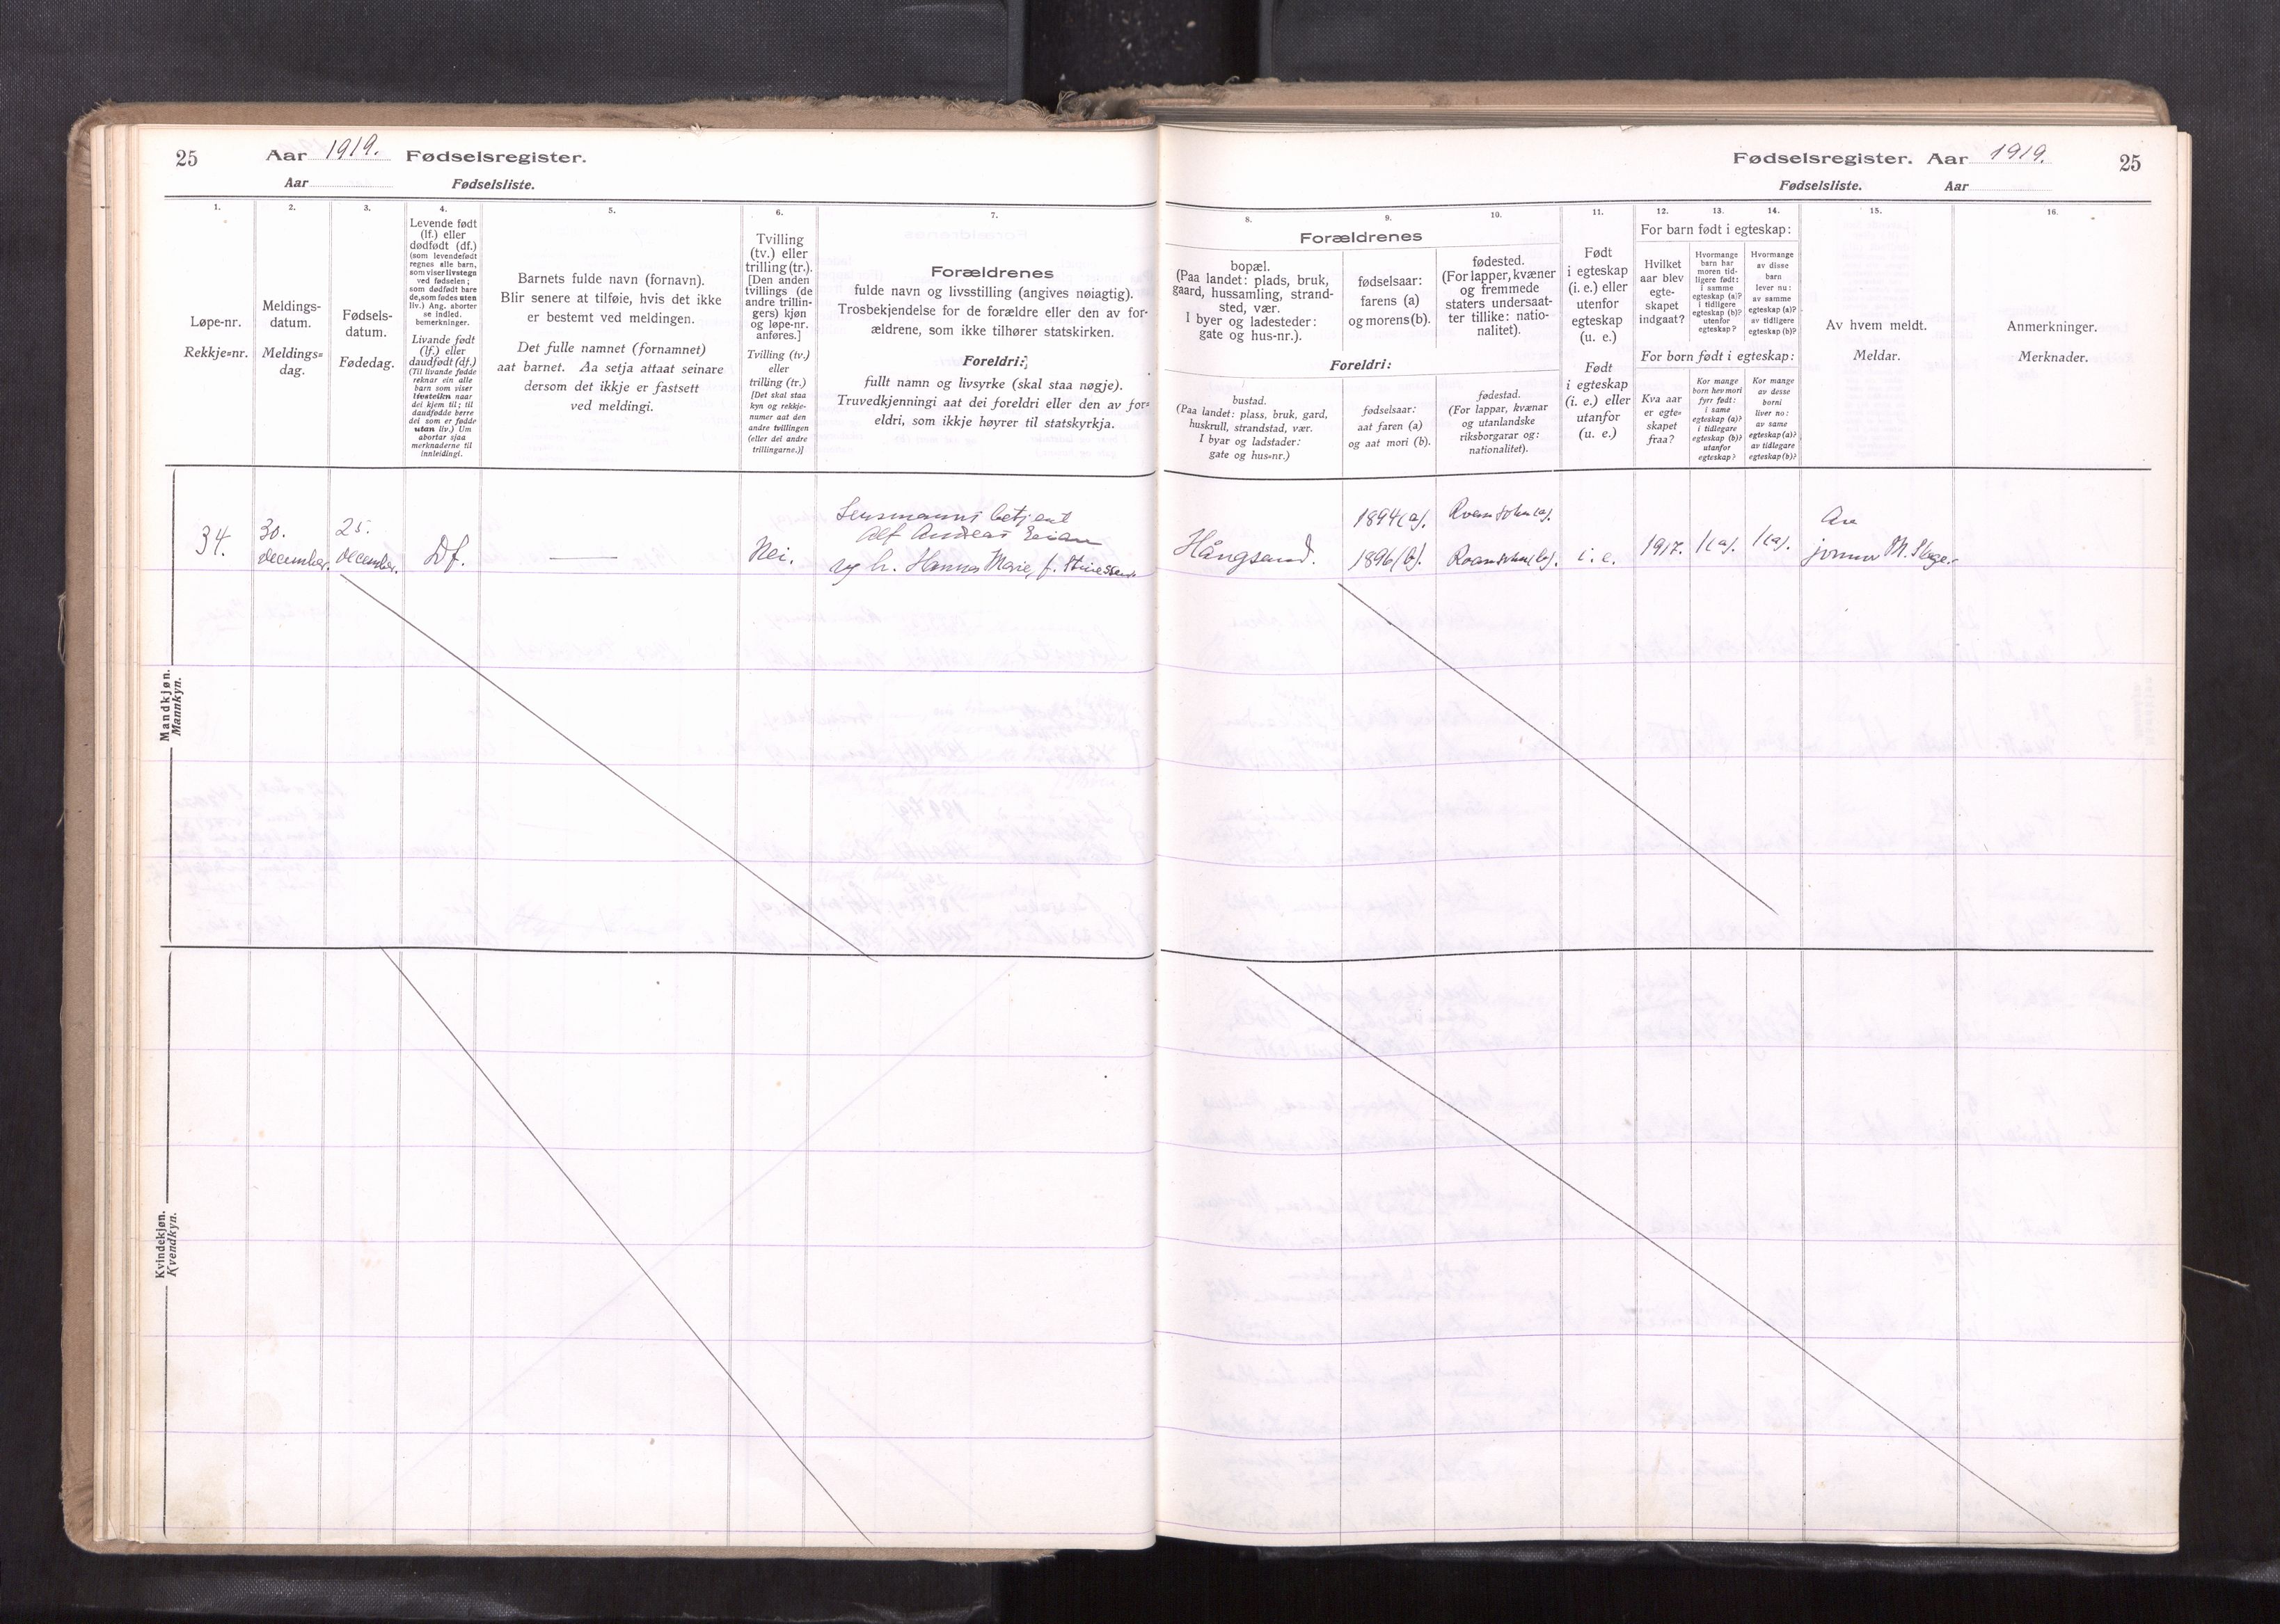 25
Aar 1919. Fødselsregister.
Aar Fødselsliste.
1.
2.
3.
4.
5.
6.
7.
Løpe-nr.
Rekkje=nr.
Meldings-
datum.
Meldings=
dag.
Fødsels-
datum.
Fødedag.
Levende født
(lf.) eller
dødfødt (df.)
(som levendefødt
regnes alle barn,
som viser livstegn
ved fødselen;
som dødfødt bare
de, som fødes uten
liv.) Ang. aborter
se indled.
bemerkninger.
Livande født
(lf.) eller
daudfødt (df.)
(Til livande fødde
reknar ein alle
barn som viser
livsteikn naar
dei kjem til; til
daudfødde berre
dei som er fødde
utan liv.) Um
abortar sjaa
merknaderne til
innleidingi.
Barnets fulde navn (fornavn).
Blir senere at tilføie, hvis det ikke
er bestemt ved meldingen.
Det fulle namnet (fornamnet)
aat barnet. Aa setja attaat seinare
dersom det ikkje er fastsett
ved meldingi.
Tvilling
(tv.) eller
trilling (tr.).
[Den anden
tvillings (de
andre trillin-
gers) kjøn
og løpe-nr.
anføres.]
Tvilling (tv.)
eller
trilling (tr.)
[Det skal staa
kyn og rekkje-
numer aat den
andre tvillingen
(eller dei andre
trillingarne.)]
Forældrenes
fulde navn og livsstilling (angives nøiagtig).
Trosbekjendelse for de forældre eller den av for-
ældrene, som ikke tilhører statskirken.
Foreldri:
fullt namn og livsyrke (skal staa nøgje).
Truvedkjenningi aat dei foreldri eller den av for=
eldri, som ikkje høyrer til statskyrkja.
Mandkjøn.
Mannkyn.
34.
30.
december.
25.
december.
Df.
Nei.
Lensmanns betjent
Alf Andreas Eian
og h. Hanna Marie, f.
Kvindekjøn.
Kvendkyn.
Fødselsregister. Aar 1919.
25
Fødselsliste. Aar
8.
9.
10.
11.
12.
13.
14.
15.
16.
Forældrenes
bopæl.
(Paa landet: plads, bruk,
gaard, hussamling, strand-
sted, vær.
I byer og ladesteder:
gate og hus-nr.).
fødselsaar:
farens (a)
og morens (b).
fødested.
(For lapper, kvæner
og fremmede
staters undersaat-
ter tillike: natio-
nalitet).
Foreldri:
bustad.
(Paa landet: plass, bruk, gard,
huskrull, strandstad, vær.
I byar og ladstader:
gate og hus=nr.)
fødselsaar:
aat faren (a)
og aat mori (b).
fødestad.
(For lappar, kvænar
og utanlandske
riksborgarar og:
nationalitet).
Født
i egteskap
(i. e.) eller
utenfor
egteskap
(u. e.)
Født
i egteskap
(i. e.) eller
utanfor
(u. e.)
For barn født i egteskap:
Hvilket
aar blev
egte-
skapet
indgaat?
Hvormange
barn har
moren tid-
ligere født:
i samme
egteskap (a)?
i tidligere
egteskap (b)?
utenfor
egteskap?
Hvormange
av disse
barn
lever nu:
av samme
egteskap (a)?
av tidligere
egteskap (b)?
For born født i egteskap:
Kva aar
er egte=
skapet
fraa?
Kor mange
born hev mori
fyrr født:
i same
egteskap (a)?
i tidlegare
egteskap (b)?
utanfor
egteskap?
Kor mange
av desse
borni
liver no:
av same
egteskap (a)?
av tidlegare
egteskap (b)?
Av hvem meldt.
Meldar.
Anmerkninger.
Merknader.
Hångsand.
1894 (a).
1896 (b).
i. e.
1917.
1 (a).
1 (a).